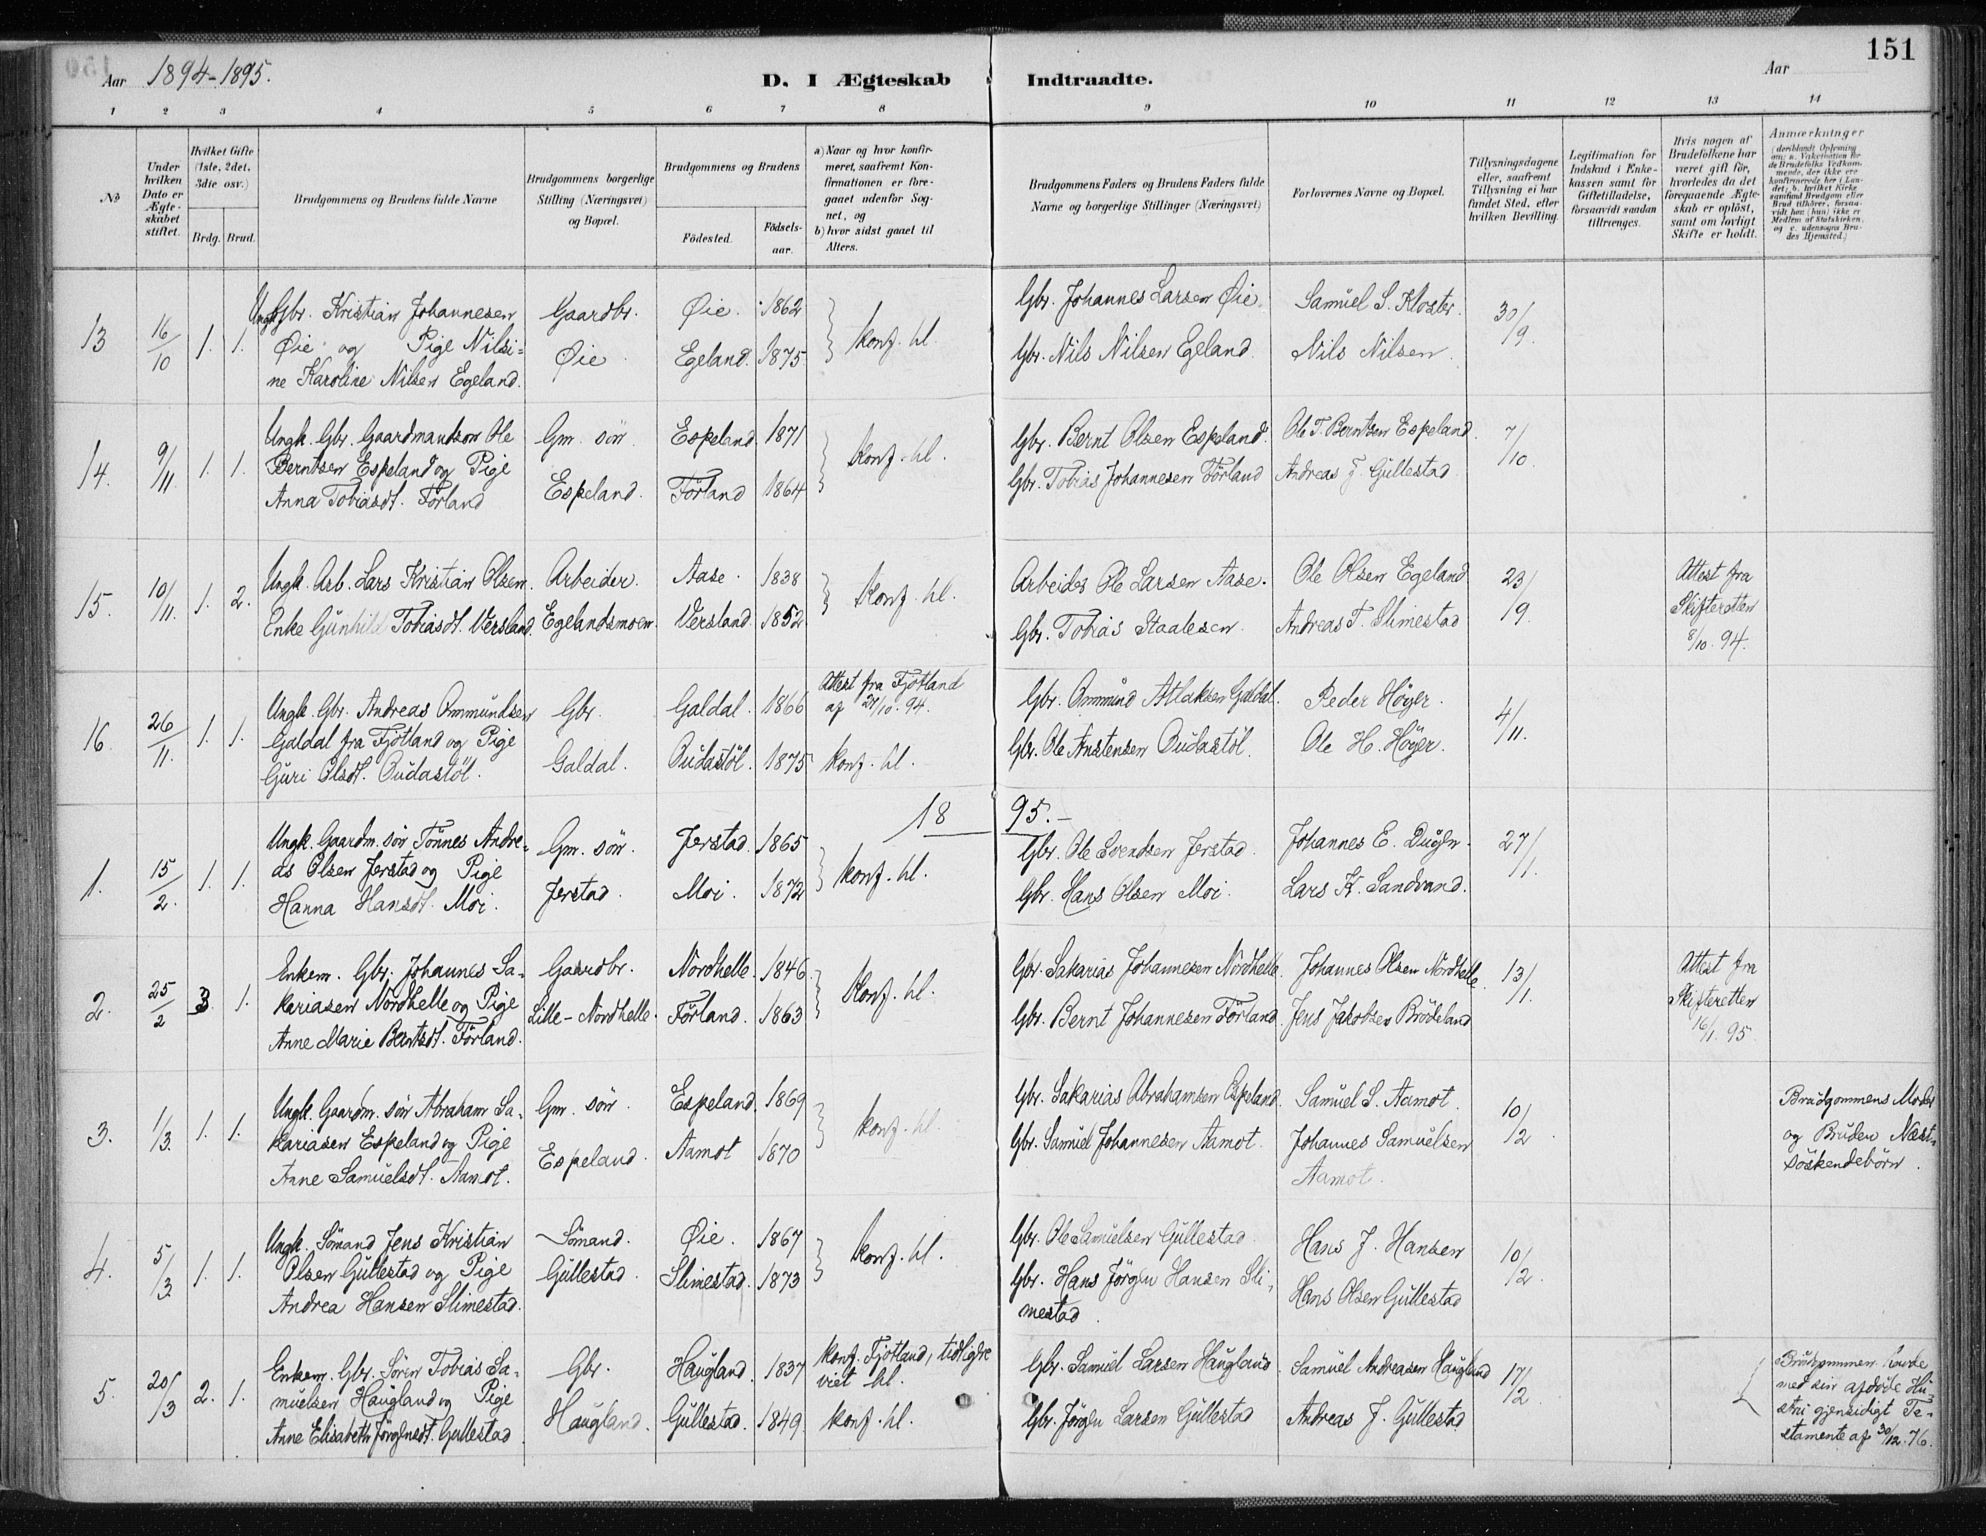 151
Aar 1894-1895.
D. I Ægteskab Indtraadte.
Aar
1 2 3 4 5 6 7 8 9 10 11 12 13 14
No
Under hvilken Dato er Ægteskabet stiftet.
Hvilket Gifte (1ste, 2det, 3die osv.)
Brdg. Brud.
Brudgommens og Brudens fulde Navne
Brudgommens borgerlige Stilling (Næringsvei) og Bopæl.
Brudgommens og Brudens
Fødested.
Fødselsaar.
a) Naar og hvor konfirmeret, saafremt Konfirmationen er foregaaet udenfor Sognet, og
b) hvor sidst gaaet til Alters.
Brudgommens Faders og Brudens Faders fulde Navne og borgerlige Stillinger (Næringsvei)
Forlovernes Navne og Bopæl.
Tillysningsdagene eller, saafremt Tillysning ei har fundet Sted, efter hvilken Bevilling.
Legitimation for Indskud i Enkekassen samt for Giftetilladelse, forsaavidt saadan tiltrænges.
Hvis nogen af Brudefolkene har været gift før, hvorledes da det foregaaende Ægteskab er opløst, samt om lovligt Skifte er holdt.
Anmærkninger (deriblandt Oplysning om: a. Vakcination for de Brudefolks Vedkommende, der ikke ere konfirmerede her i Landet; b. hvilket Kirkesamfund Brudgom eller Brud tilhører, forsaavidt han (hun) ikke er Medlem af Statskirken, og c. udensogns Brudes Hjemsted.)
13 16/10 1. 1.
Ungk. Gbr. Kristian Johannesen
Øie og Pige Nilsi-
ne Karoline Nilsen Egeland.
Gaardbr.
Øie
Øie. 1862
Egeland. 1875.
konf. hl.
Gbr. Johannes Larsen Øie.
Gbr. Nils Nilsen Egeland.
Samuel S. Kloster.
Nils Nilsen.
30/9.
14. 9/11 1. 1.
Ungk. Gbr. Gaardmandssøn Ole
Berntsen Espeland og Pige
Anna Tobiasdt. Förland
Gm. søn
Espeland.
Espeland. 1871
Förland 1864
konf. hl.
Gbr. Bernt Olsen Espeland.
Gbr. Tobias Johannesen Förland
Ole T. Berntsen Espeland.
Andreas J. Gullestad
7/10
15. 10/11. 1. 2.
Ungk. Arb. Lars Kristian Olsen.
Enke Gunhild Tobiasdt. Versland.
Arbeider.
Egelandsmoen.
Aase. 1838
Versland 1852
konf. hl.
Arbeides Ole Larsen Aase.
Gbr. Tobias Staalesen.
Ole Olsen Egeland
Andreas T. Slimestad
23/19.
Attest fra
Skifteretten
8/10. 94.
16 26/11. 1. 1.
Ungk. Gbr. Andreas Ommundsen
Galdal fra Fjotland og Pige
Guri Olsdt. Oudastöl.
Gbr.
Galdal.
Galdal. 1866
Oudastöl. 1875
Attest fra Fjotland
af 21/10. 94.
konf. hl.
Gbr. Ommund Atlaksen Galdal.
Gbr. Ole Anstensen Oudastöl.
Peder Höyer.
Ole H. Höyer.
4/11.
1895.
1. 15/2. 1. 1.
Ungk. Gaardm. søn Tönnes Andre-
as Olsen Jerstad og Pige
Hanna Hansdt. Moi.
Gm. søn.
Jerstad.
Jerstad. 1865
Moi. 1872
konf. hl.
Gbr. Ole Svendsen Jerstad.
Gbr. Hans Olsen Moi.
Johannes E.
Lars K. Sandvand.
27/1.
2. 25/2 3. 1.
Enkem. Gbr. Johannes Sa-
kariasen Nordhelle og Pige
Anne Marie Berntsdt. Förland.
Gaardbr.
Lille-Nordhelle.
Nordhelle. 1846
Förland. 1863
konf. hl.
Gbr. Sakarias Johannesen Nordhelle.
Gbr. Bernt Johannesen Förland.
Johannes Olsen Nordhelle
Jens Jakobsen Brödeland
13/1.
Attest fra
Skifteretten
16/1. 95.
3. 1/3. 1. 1.
Ungk. Gaardm. søn Abraham Sa-
kariasen Espeland og Pige
Anne Samuelsdt. Aamot.
Gm. søn.
Espeland.
Espeland. 1869
Aamot 1870
konf. hl.
Gbr. Sakarias Abrahamsen Espeland.
Gbr. Samuel Johannesen Aamot.
Samuel S. Aamot.
Johannes Samuelsen
Aamot.
10/2
Brudgommens Moder
og Bruden Næst-
söskendebörn.
4. 5/3. 1. 1.
Ungk. Sömand Jens Kristian
Olsen Gullestad og Pige
Andrea Hansen Slimestad.
Sömand.
Gullestad.
Øie. 1867
Slimestad. 1873
konf. hl.
Gbr. Ole Samuelsen Gullestad.
Gbr. Hans Jörgen Hansen Sli-
mestad.
Hans J. Hansen
Hans Olsen Gullestad
10/2.
5. 20/3 2. 1.
Enkem. Gbr. Sören Tobias Sa-
muelsen Haugland og Pige
Anne Elisabeth Jörgensdt. Gullestad
Gbr.
Haugland.
Haugland. 1837
Gullestad. 1849
konf. Fjotland, tidligere
viet hl.
konf. hl.
Gbr. Samuel Larsen Haugland
Gbr. Jörgen Larsen Gullestad
Samuel Andreasen Haugland
Andreas J. Gullestad
17/2
Brudgommen havde
med sin afdöde Hu-
stru gjensidigt Te-
stamente af 30/12. 76.